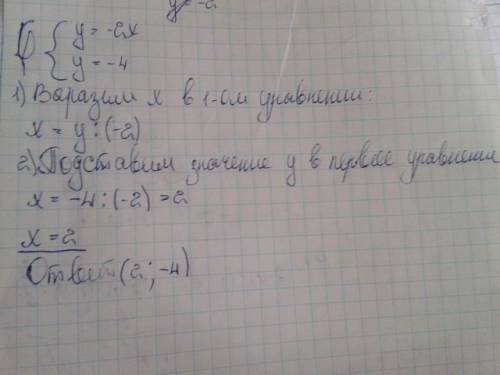 y = -2
{ y = -2x
y = -4
1) Выразим x в 1-ом уравнении:
x = y : (-2)
2) Подставим значение y в первое уравнение
x = -4 : (-2) = 2
x = 2
Ответ (2; -4)